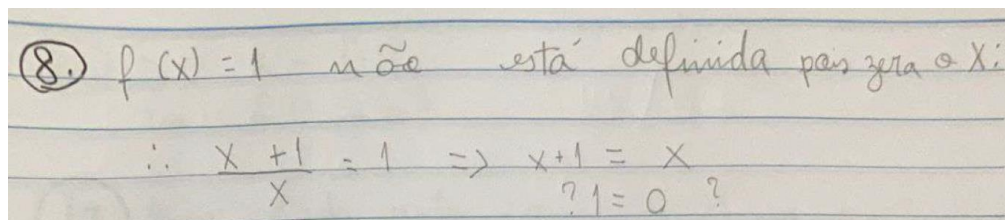 8. f(x) = 1 não está definida pois zera o X:
∴ x + 1 / x = 1 => x+1 = x
? 1 = 0 ?